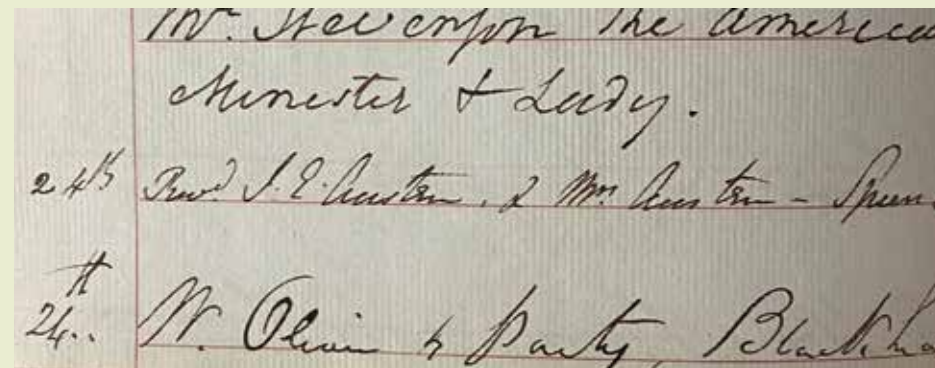 Mr. Stevenson the America
Minester & Lady.
24th Revd. J. E. Austen, & Mrs. Austen - Speen
24th.. W. Olivier & Party, Blackh